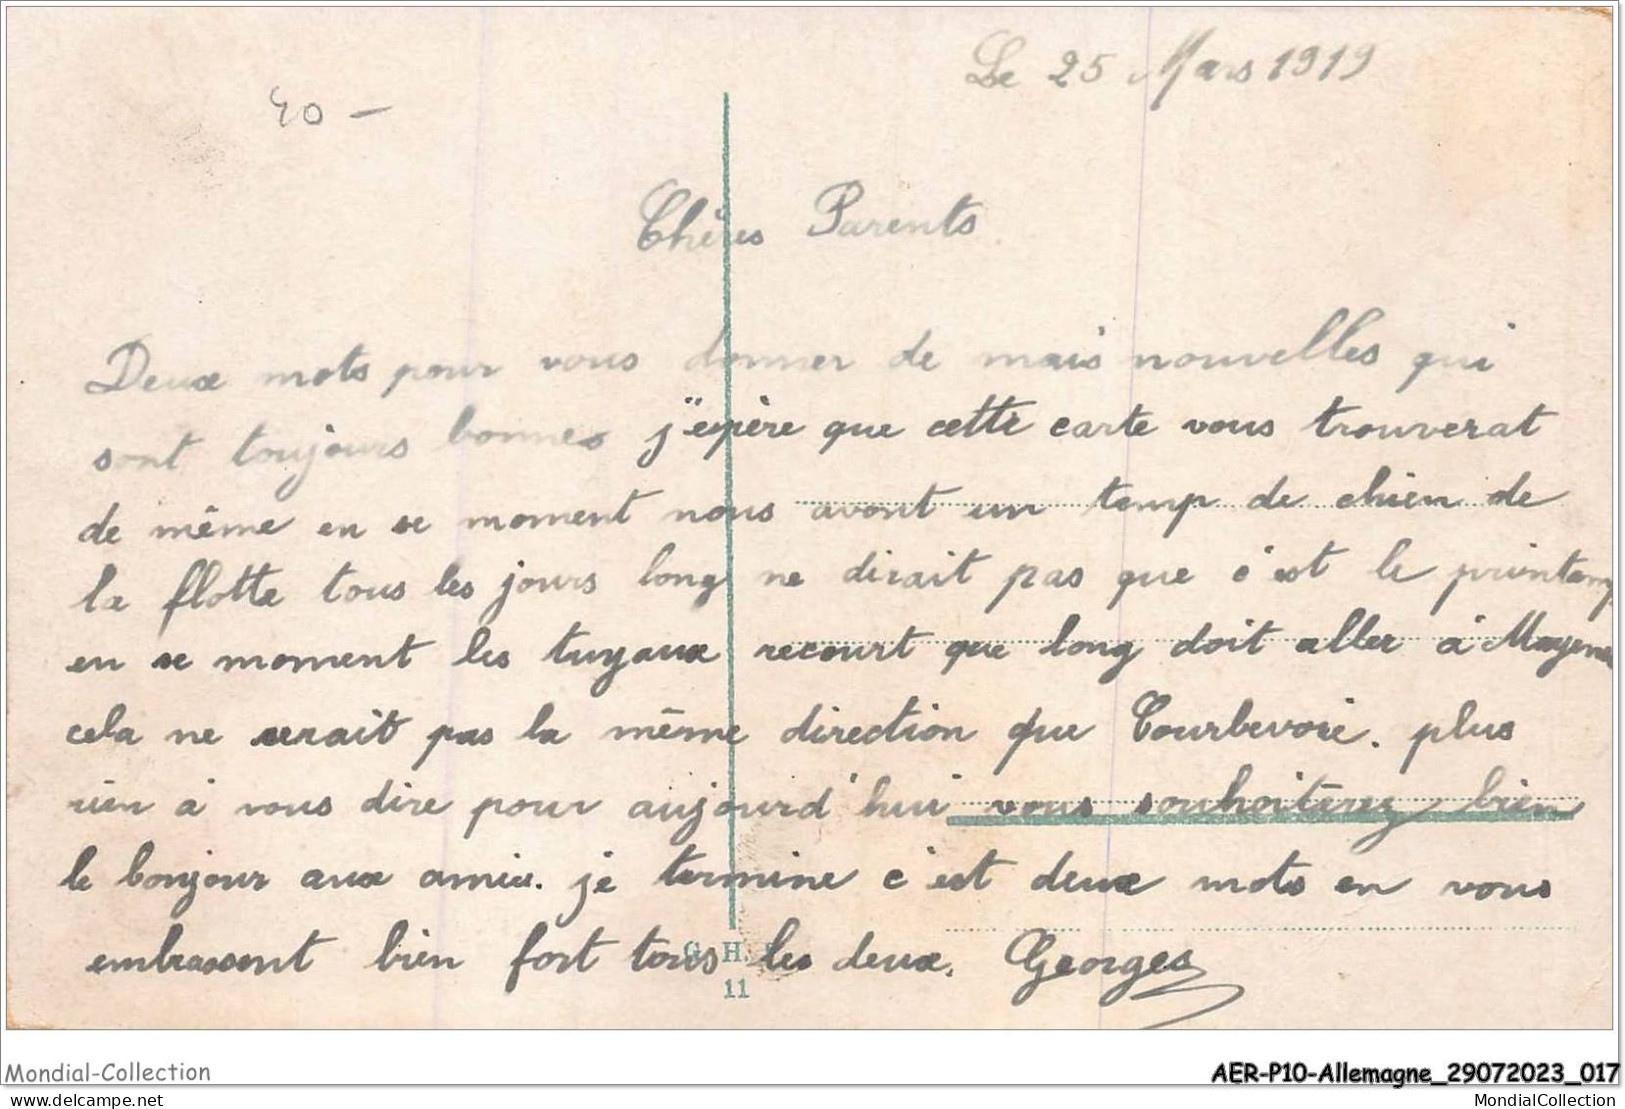 40 –
Le 25 Mars 1919
Chères Parents
Deux mots pour vous donner de mais nouvelles qui
sont toujours bonnes j''epère que cette carte vous trouverat
de même en se moment nous avont un temp de chien de
la flotte tous les jours long ne dirait pas que c'est le printemp
en se moment les tuyaux recourt que long doit aller à Mayence
cela ne serait pas la même direction que Courbevoie. plus
rien à vous dire pour aujourd'hui vous souhoiterez bien
le bonjour aux amis. je termine c'est deux mots en vous
embrassent bien fort tous les deux. Georges
G. H.
11
Mondial-Collection
AER-P10-Allemagne_29072023_017
delcampe.net
MondialCollection